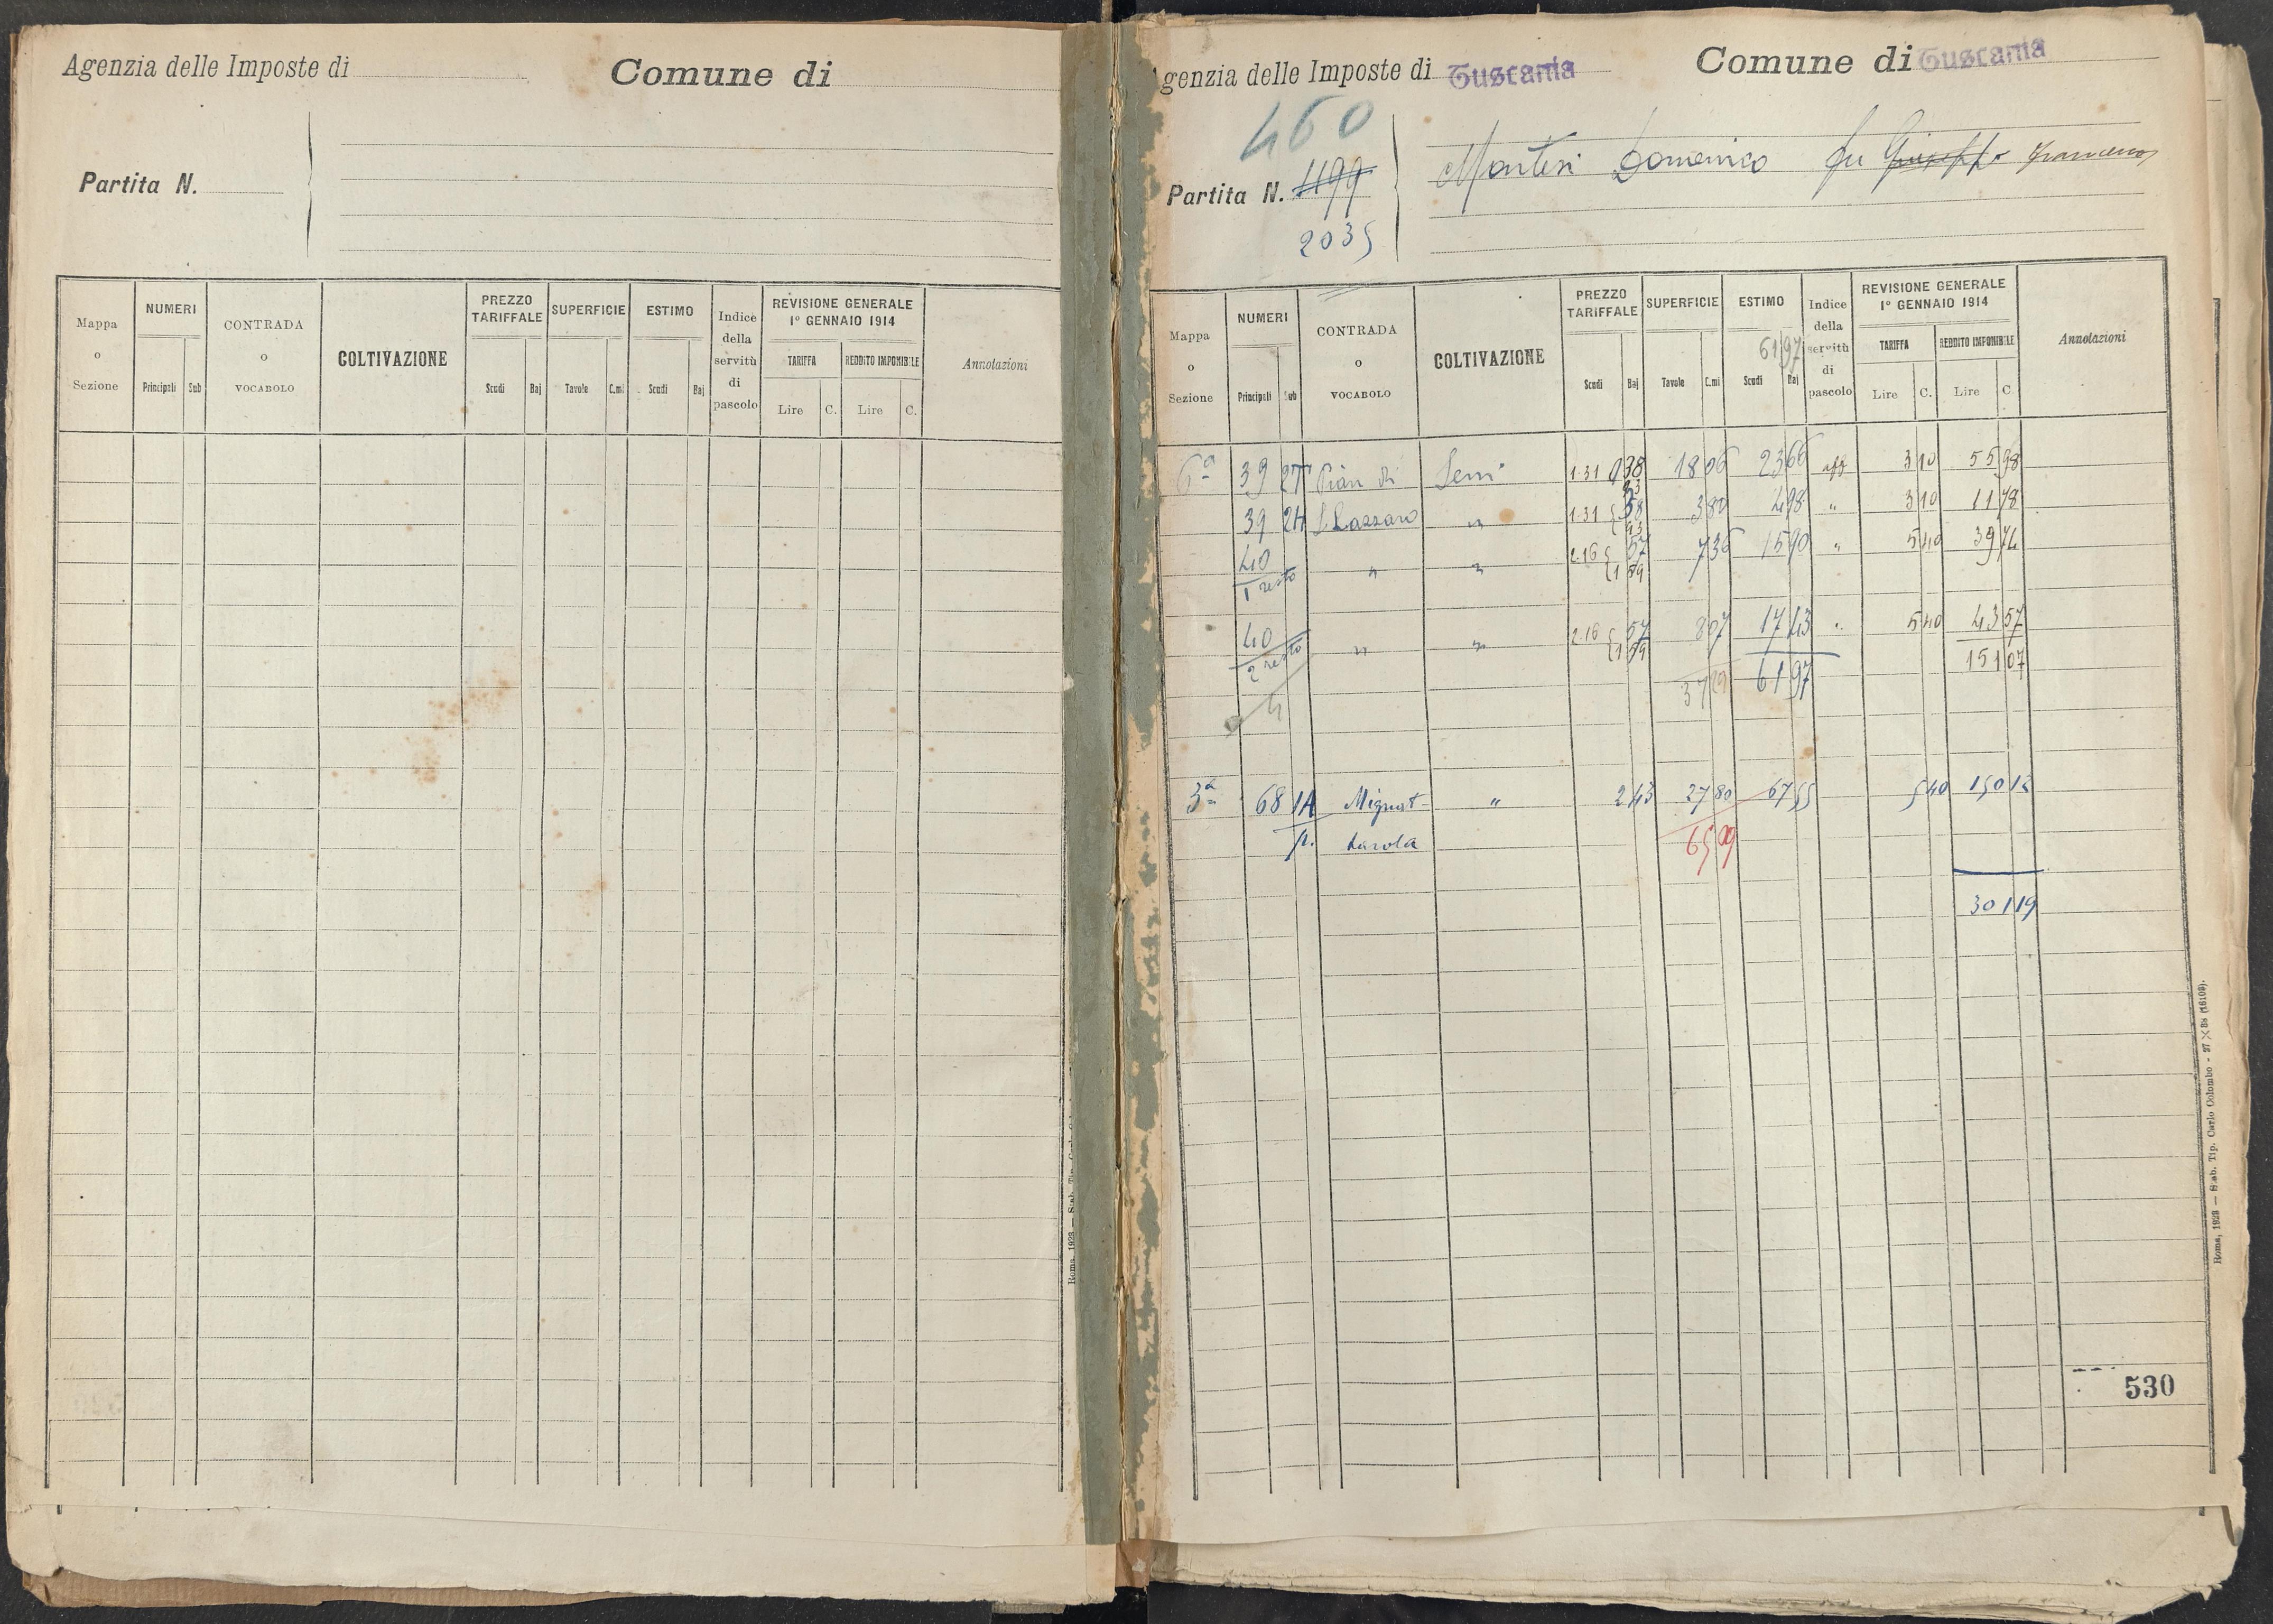 Agenzia delle Imposte di
Comune di
Partita N.
Mappa o Sezione
NUMERI
Principali
Sub
CONTRADA o VOCABOLO
COLTIVAZIONE
PREZZO TARIFFALE
Scudi
Baj
SUPERFICIE
Tavole
C.mi
ESTIMO
Scudi
Baj
Indice della servitù di pascolo
REVISIONE GENERALE
1° GENNAIO 1914
TARIFFA
REDDITO IMPONIBILE
Lire
C.
Lire
C.
Annotazioni
genzia delle Imposte di Tuscania
Comune di Tuscania
460
Partita N. 1199
2035
Montesi Domenico fu Giuseppe Francesco
Mappa o Sezione
NUMERI
Principali
Sub
CONTRADA o VOCABOLO
COLTIVAZIONE
PREZZO TARIFFALE
Scudi
Baj
SUPERFICIE
Tavole
C.mi
ESTIMO
61 97
Scudi
Baj
Indice della servitù di pascolo
REVISIONE GENERALE
1° GENNAIO 1914
TARIFFA
REDDITO IMPONIBILE
Lire
C.
Lire
C.
Annotazioni
6ª 39 2T Pian di Sem. 1.31 38 18 06 23 66 aff 3 10 55 98
39 2H S. Lazzaro " 1.31 3 80 4 98 " 3 10 11 78
40 1 resto " " 2.16 57 7 36 15 90 " 5 40 39 74
40 2 resto " " 2.16 57 8 07 17 43 " 5 40 43 57
37 29 61 97 151 07
4
3ª 68 1A Mignat- " 2 43 27 80 67 55 5 40 150 12
p. tarola 65 09
301 19
530
Roma, 1923 — Stab. Tip. Carlo Colombo - 27 × 38 (16109).